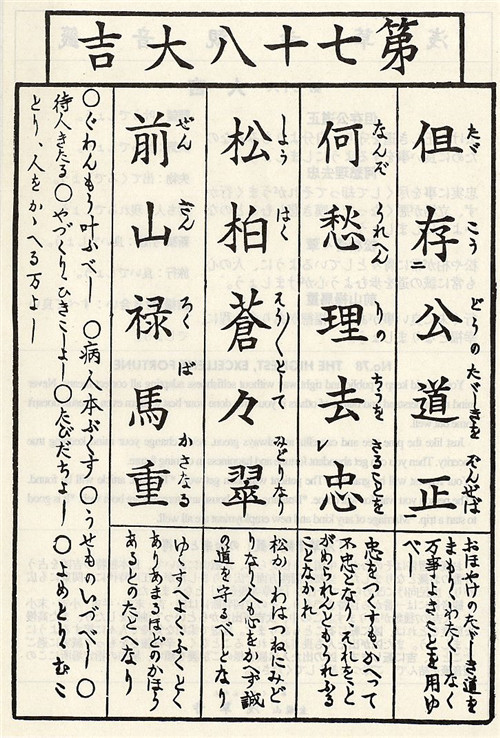 第七十八大吉
但存公道正
たゞ こう どうのたゞしきをぞんせば
おほやけのたゞしき道を
まもりわたくしなく
万事よきことを用ゆ
べし
何愁理去忠
なんぞうれへん りの をさることを
忠をつくすもかへつて
不忠となりそれをこと
がめられんともうれふる
ことなかれ
松柏蒼々翠
しよう はく そう〳〵として みどりなり
松かしわはつねにみど
りなり人も心をかへず誠
の道を守るべしとなり
前山禄馬重
ぜん ざん ろく ば かさなる
ゆくすへよりふくとく
ありあまるほどのかほり
あるとのたとへなり
〇ぐわんもう叶ふべし 〇病人本ぶくす〇うせものいづべし〇
待人きたる〇やづくりひきこしよし〇たびだちよし 〇よめとりむこ
とり、人をかゝへる万よし